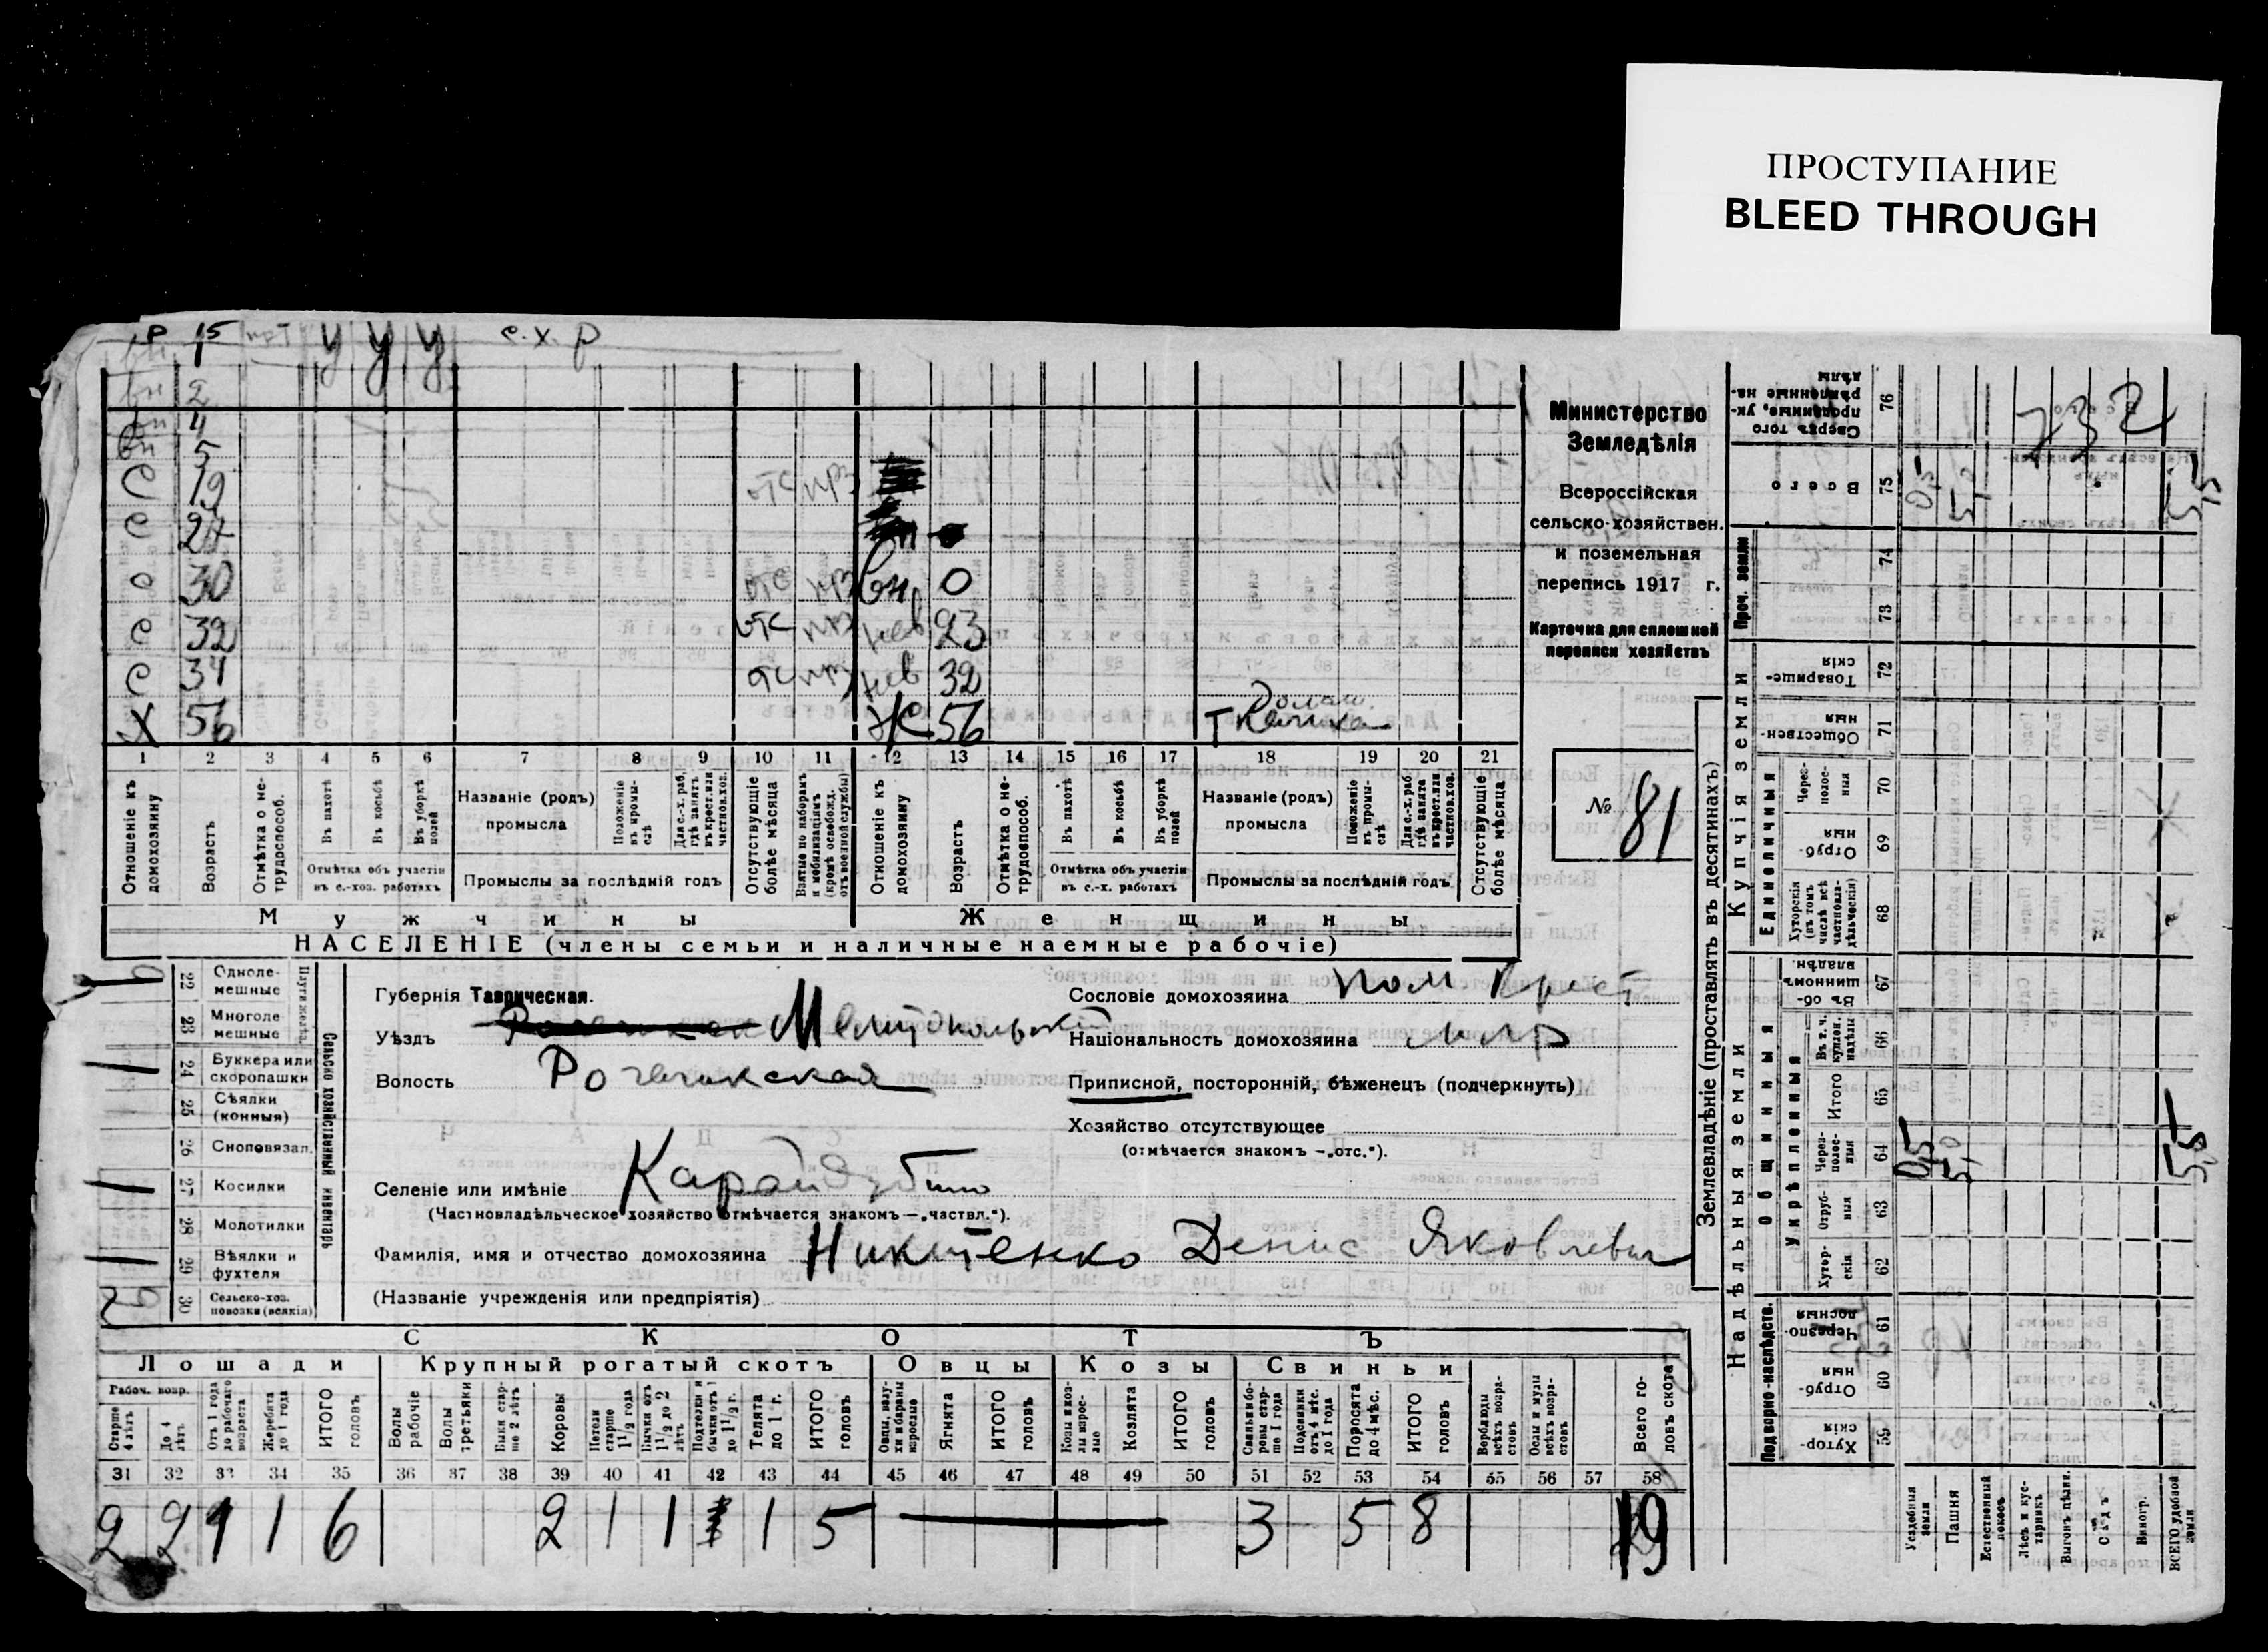 ПРОСТУПАНИЕ
BLEED THROUGH
р 15 у у у с.х. р
1
вн 2
вн 4
вн 5
с 19 отс мрз
с 27
с 30 отс мрз вн 0
с 32 отс мрз нев 23
с 34 отс мрз нев 32
х 56 ж 56 Домаш. Ткачиха
1 2 3 4 5 6 7 8 9 10 11 12 13 14 15 16 17 18 19 20 21
Отношеніе къ домохозяину
Возрастъ
Отмѣтка о нетрудоспособ.
Въ пахотѣ
Въ косьбѣ
Въ уборкѣ полей
Отмѣтка объ участіи въ с.-хоз. работахъ
Названіе (родъ) промысла
Положеніе въ промыслѣ
Для с.-х. раб. гдѣ занятъ въ крест. или частнов. хоз.
Промыслы за послѣдній годъ
Отсутствующіе болѣе мѣсяца
Взятые по наборамъ и мобилизаціямъ (кромѣ освобожд. отъ военной службы)
Отношеніе къ домохозяину
Возрастъ
Отмѣтка о нетрудоспособ.
Въ пахотѣ
Въ косьбѣ
Въ уборкѣ полей
Отмѣтка объ участіи въ с.-х. работахъ
Названіе (родъ) промысла
Положеніе въ промыслѣ
Для с.-х. раб. гдѣ занята въ крест. или частнов. хоз.
Промыслы за послѣдній годъ
Отсутствующіе болѣе мѣсяца
Мужчины Женщины
НАСЕЛЕНІЕ (члены семьи и наличные наемные рабочіе)
Министерство
Земледѣлія
Всероссійская
сельско-хозяйствен.
и поземельная
перепись 1917 г.
Карточка для сплошной
переписи хозяйствъ
№ 81
Сельско хозяйственный инвентарь
Плуги желѣз.
22 Одноле-мешные
23 Многоле мешные
24 Буккера или скоропашки
25 Сѣялки (конныя)
26 Сноповязал.
27 Косилки
28 Молотилки
29 Вѣялки и фухтеля
30 Сельско-хоз. повозки (всякія)
Губернія Таврическая.
Уѣздъ Мелитопольскій
Волость Рогачикская
Селеніе или имѣніе Карайдубино
(Частновладѣльческое хозяйство отмѣчается знакомъ —„частвл.").
Фамилія, имя и отчество домохозяина Никитенко Денис Яковлевич
(Названіе учрежденія или предпріятія)
Сословіе домохозяина Крест
Національность домохозяина млр
Приписной, посторонній, бѣженецъ (подчеркнуть)
Хозяйство отсутствующее
(отмѣчается знакомъ —„отс.").
СКОТЪ
Лошади Крупный рогатый скотъ Овцы Козы Свиньи
Рабоч. возр.
Старше 4 лѣтъ
До 4 лѣтъ
Отъ 1 года до рабочаго возраста
Жеребята до 1 года
ИТОГО головъ
Волы рабочіе
Волы третьяки
Быки старше 2 лѣтъ
Коровы
Нетели старше 1½ года
Бычки отъ 1½ до 2 лѣтъ
Подтелки и бычки отъ 1 до 1½ г.
Телята до 1 г.
ИТОГО головъ
Овцы, валухи и бараны взрослые
Ягнята
ИТОГО головъ
Козы и козлы взрослые
Козлята
ИТОГО головъ
Свиньи и боровы старше 1 года
Подсвинки отъ 4 мѣс. до 1 года
Поросята до 4 мѣс.
ИТОГО головъ
Верблюды всѣхъ возрастовъ
Ослы и мулы всѣхъ возрастовъ
Всего головъ скота
31 32 33 34 35 36 37 38 39 40 41 42 43 44 45 46 47 48 49 50 51 52 53 54 55 56 57 58
2 2 1 1 6 2 1 1 1 5 3 5 8 19
Землевладѣніе (проставлять въ десятинахъ)
Надѣльныя земли Купчія земли Проч. земли
Подворно-наслѣдств. Общинныя Единоличныя
Укрѣпленныя
59 Хуторскія
60 Отрубныя
61 Черезполосныя
62 Хуторскія
63 Отрубныя
64 Черезполосныя
65 Итого
66 Въ т. ч. куплен. надѣлы
67 Въ общинномъ владѣн.
68 Хуторскія (въ томъ числѣ всѣ частновладѣльческія)
69 Отрубныя
70 Черезполосныя
71 Общественныя
72 Товарищескія
73
74
75 Всего
76 Сверхъ того проданные, укрѣпленные надѣлы
Усадебныя земли
Пашня
Естественный покосъ
Лѣсъ и кустарникъ
Выгонъ цѣлин.
Садъ
Виногр.
ВСЕГО удобной земли
05
5,5
05
5,5
732